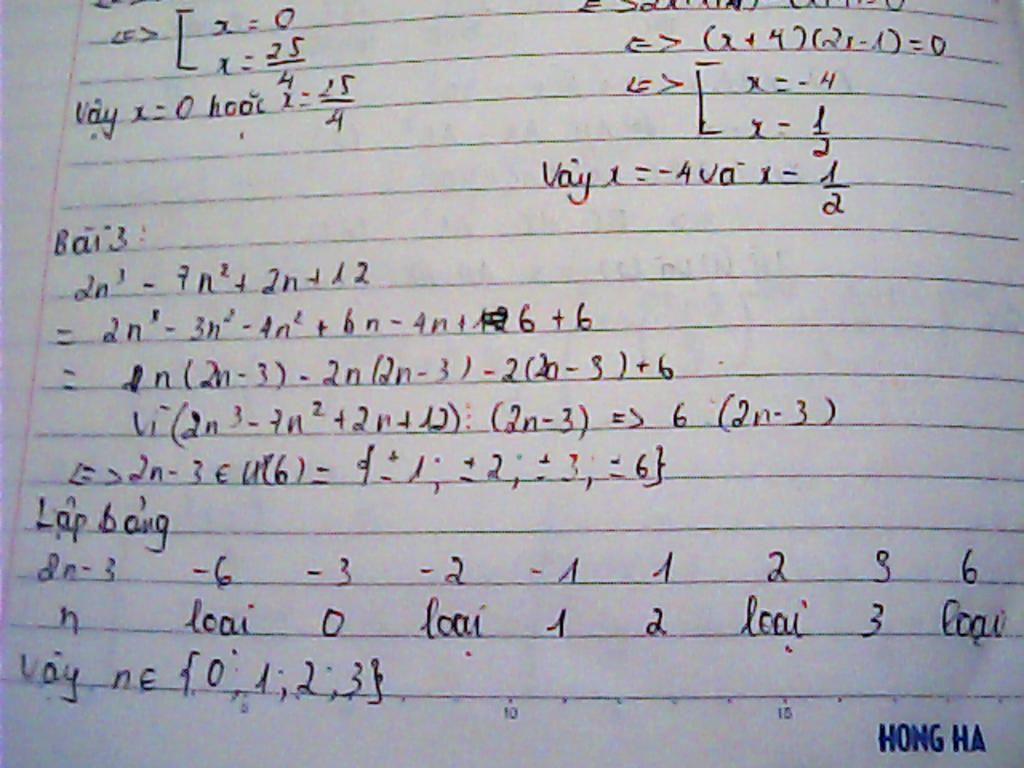 <=> [ x = 0
x = 25/4
Vậy x = 0 hoặc x = 25/4
<=> (x + 4)(2x - 1) = 0
<=> [ x = -4
x = 1/2
Vậy x = -4 và x = 1/2
Bài 3:
2n³ - 7n² + 2n + 12
= 2n³ - 3n² - 4n² + 6n - 4n + 6 + 6
= n(2n - 3) - 2n(2n - 3) - 2(2n - 3) + 6
Vì (2n³ - 7n² + 2n + 12) ⋮ (2n - 3) => 6 (2n - 3)
<=> 2n - 3 ∈ Ư(6) = {± 1; ± 2; ± 3; ± 6}
Lập bảng
2n - 3 -6 -3 -2 -1 1 2 3 6
n loại 0 loại 1 2 loại 3 loại
Vậy n ∈ {0; 1; 2; 3}
5 10 15
HONG HA